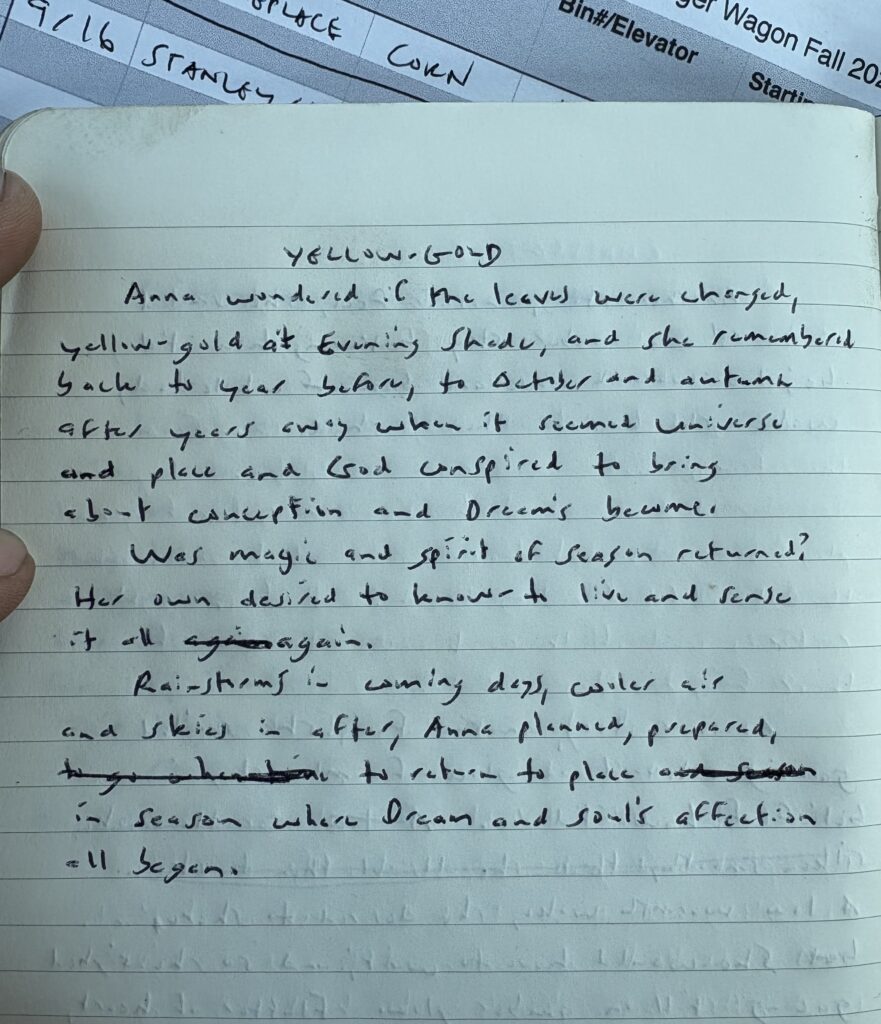 9/16 STANLEY
PLACE
CORN
Bin#/Elevator
ger Wagon Fall 202
Startin
YELLOW-GOLD
Anna wondered if the leaves were changed,
yellow-gold at Evening Shade, and she remembered
back to year before, to October and autumn
after years away when it seemed universe
and place and God conspired to bring
about conception and Dream's become.
Was magic and spirit of season returned?
Her own desired to know - to live and sense
it all again again.
Rainstorms in coming days, cooler air
and skies in after, Anna planned, prepared,
to go when time to return to place and season
in season where Dream and soul's affection
all began.